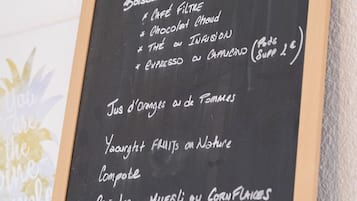 * CAFÉ FILTRE
* Chocolat Chaud
* THÉ ou INFUSION
* EXPRESSO ou CAPPUCINO (
SUPP 1 €)
Jus d'Oranges ou de Pommes
Yaourght FRUITS ou Nature
Compote
MUESLI ou CORNFLAKES
You
are
the